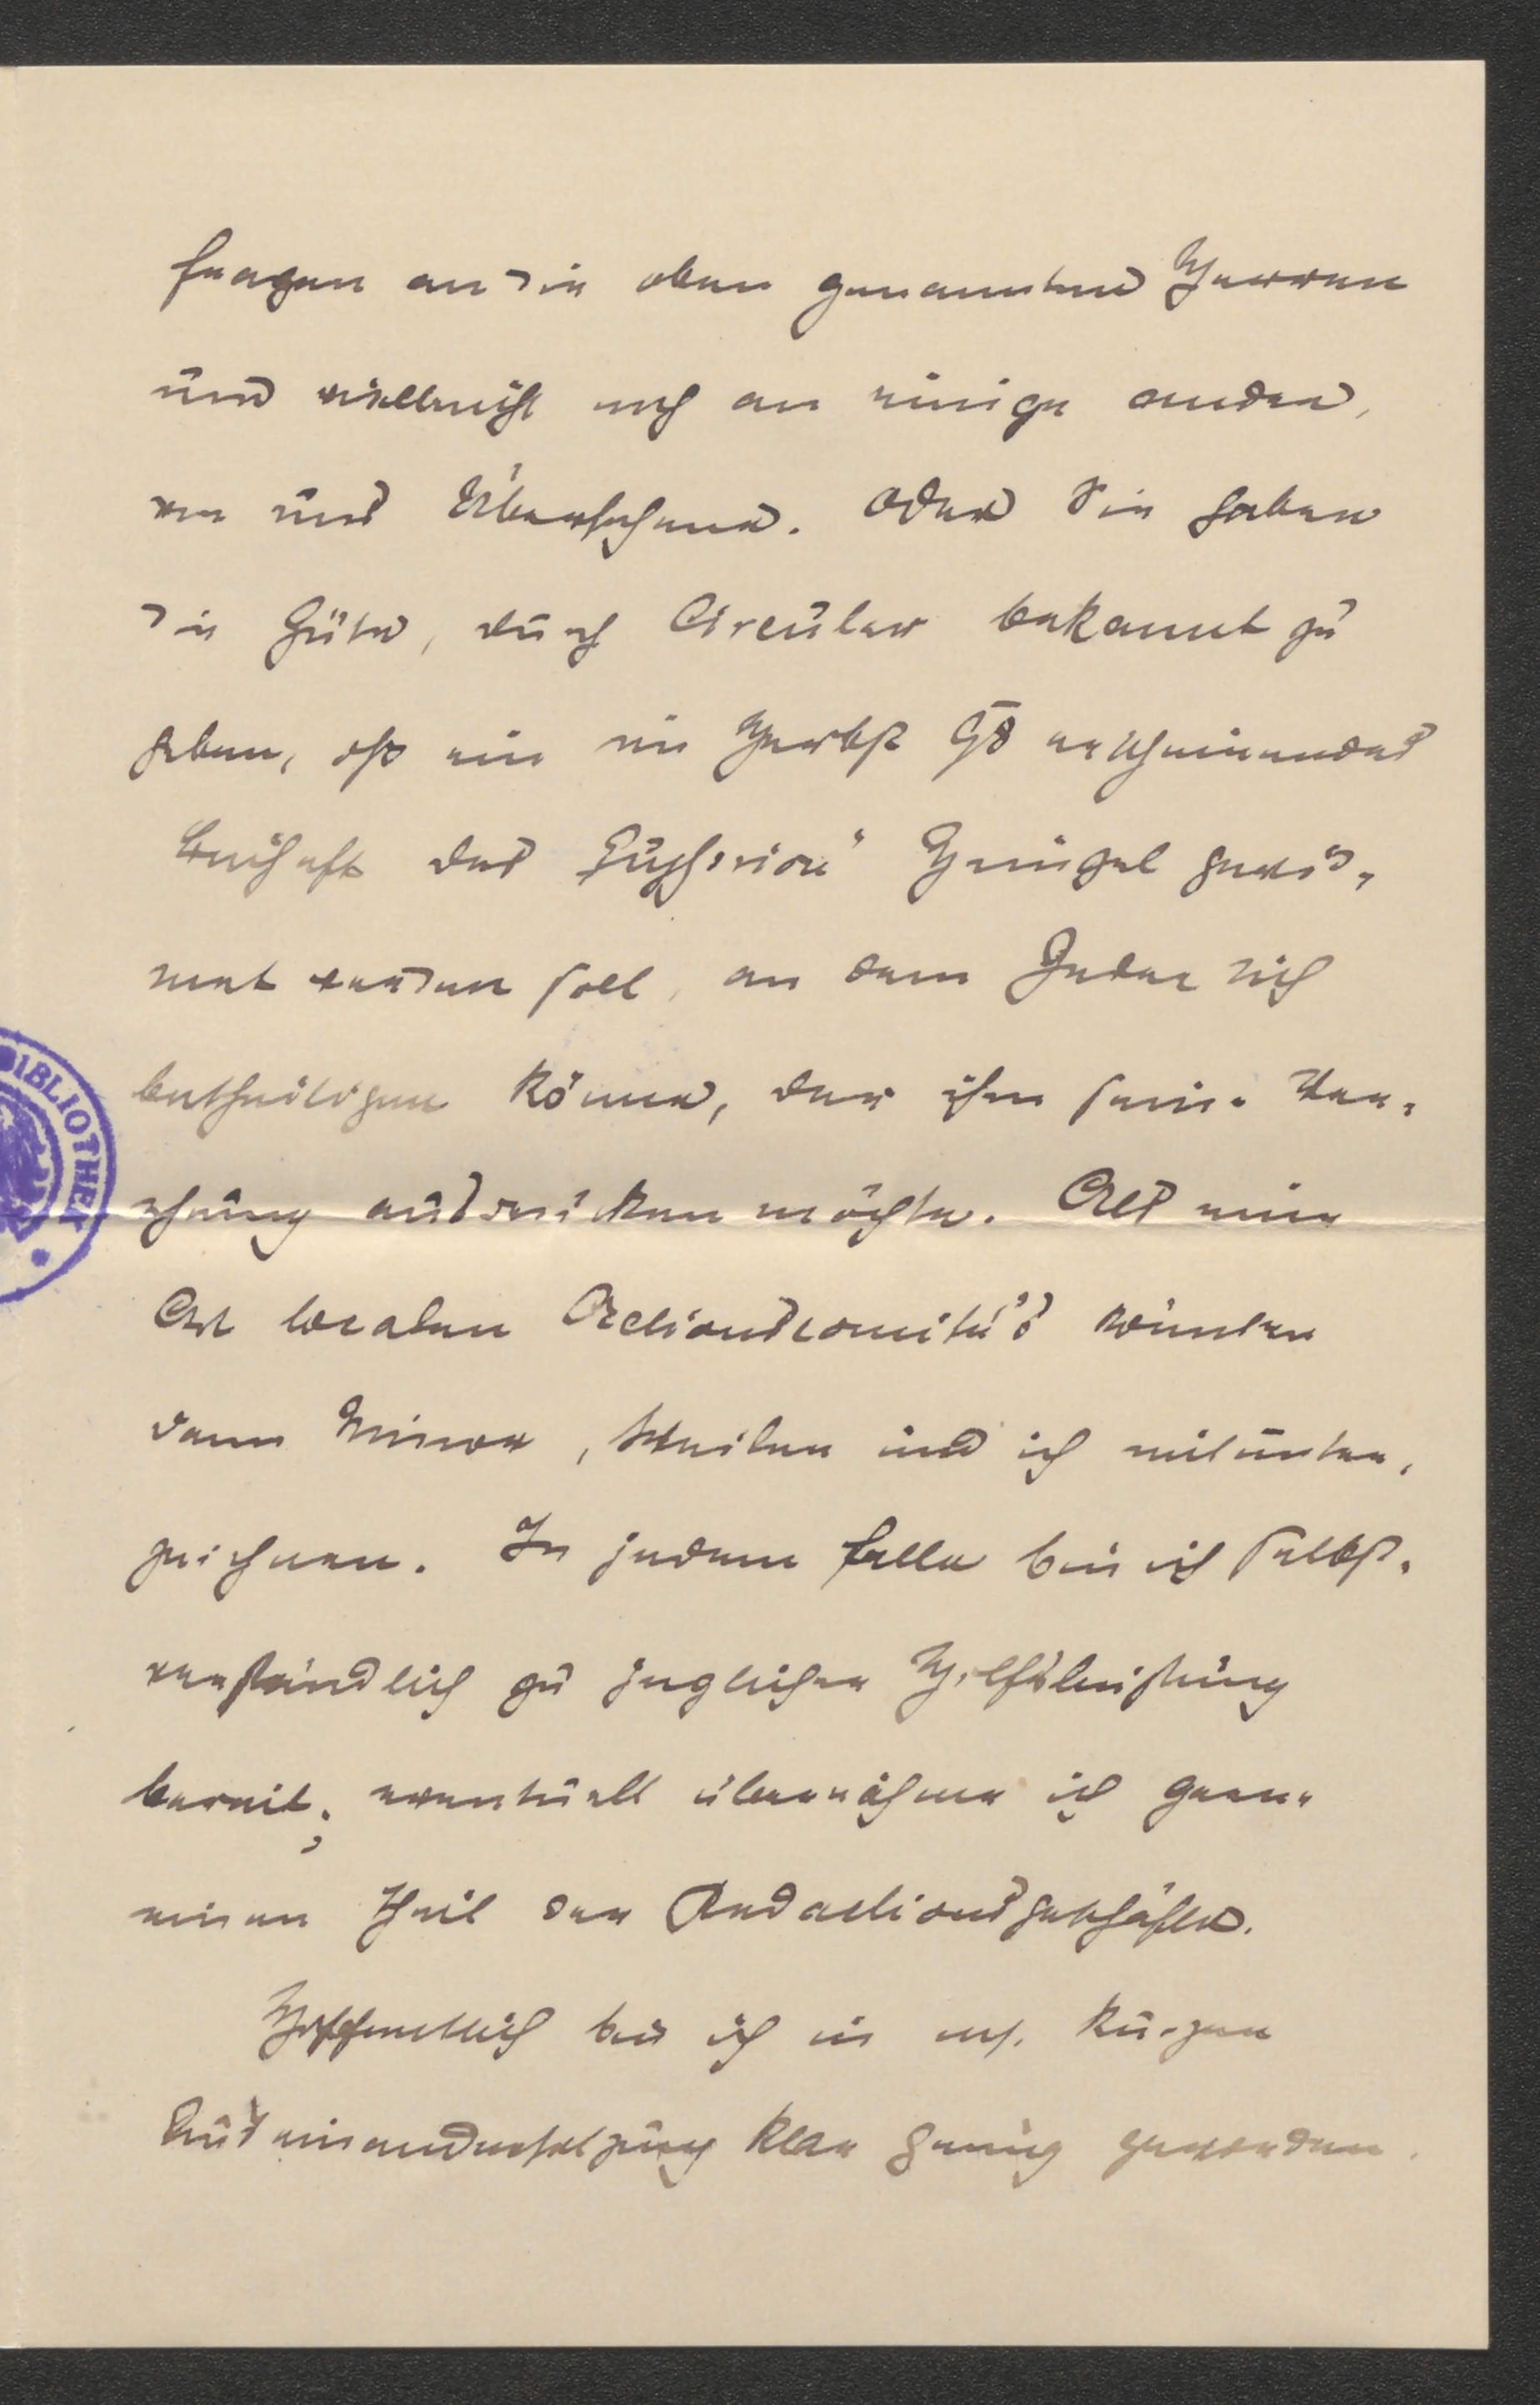 fragen an die oben genannten Herren
und vielleicht noch an einige andere,
von uns Übersehene. Oder Sie haben
die Güte, durch Circular bekannt zu
geben, dß ein im Herbst 98 erscheinendes
Beiheft des „Euphorion“ Heinzel gewid-
met werden soll, an dem Jeder sich
betheiligen könne, der ihm seine Ver-
ehrung ausdrücken möchte. Als eine
Art localen Actionscomité's könnten
dann Minor, Weilen und ich mitunter-
zeichnen. In jedem Falle bin ich selbst-
verständlich zu jeglicher Hilfsleistung
bereit; eventuell übernähme ich gerne
einen Theil der Redactionsgeschäfte.
Hoffentlich bin ich in meiner kurzen
Auseinandersetzung klar genug geworden.
BIBLIOTHEK